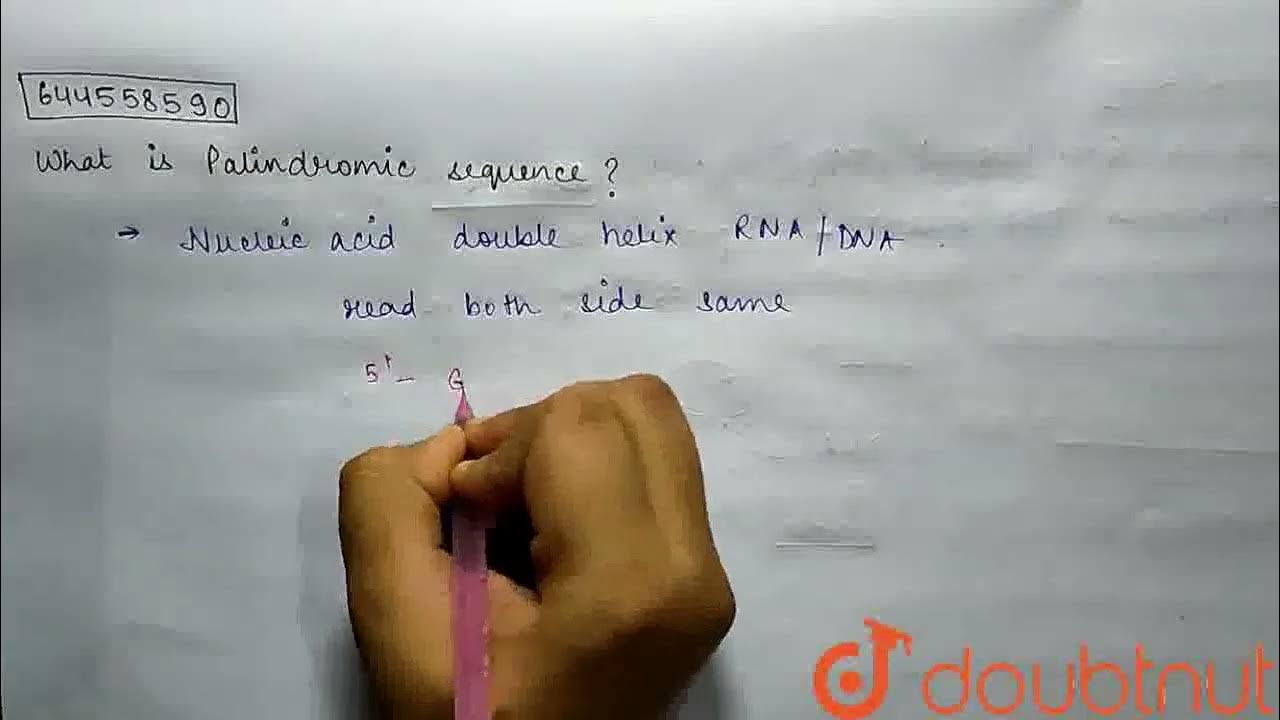 644558590
What is Palindromic sequence?
→ Nucleic acid double helix RNA/DNA.
read both side same
5' - G
doubtnut